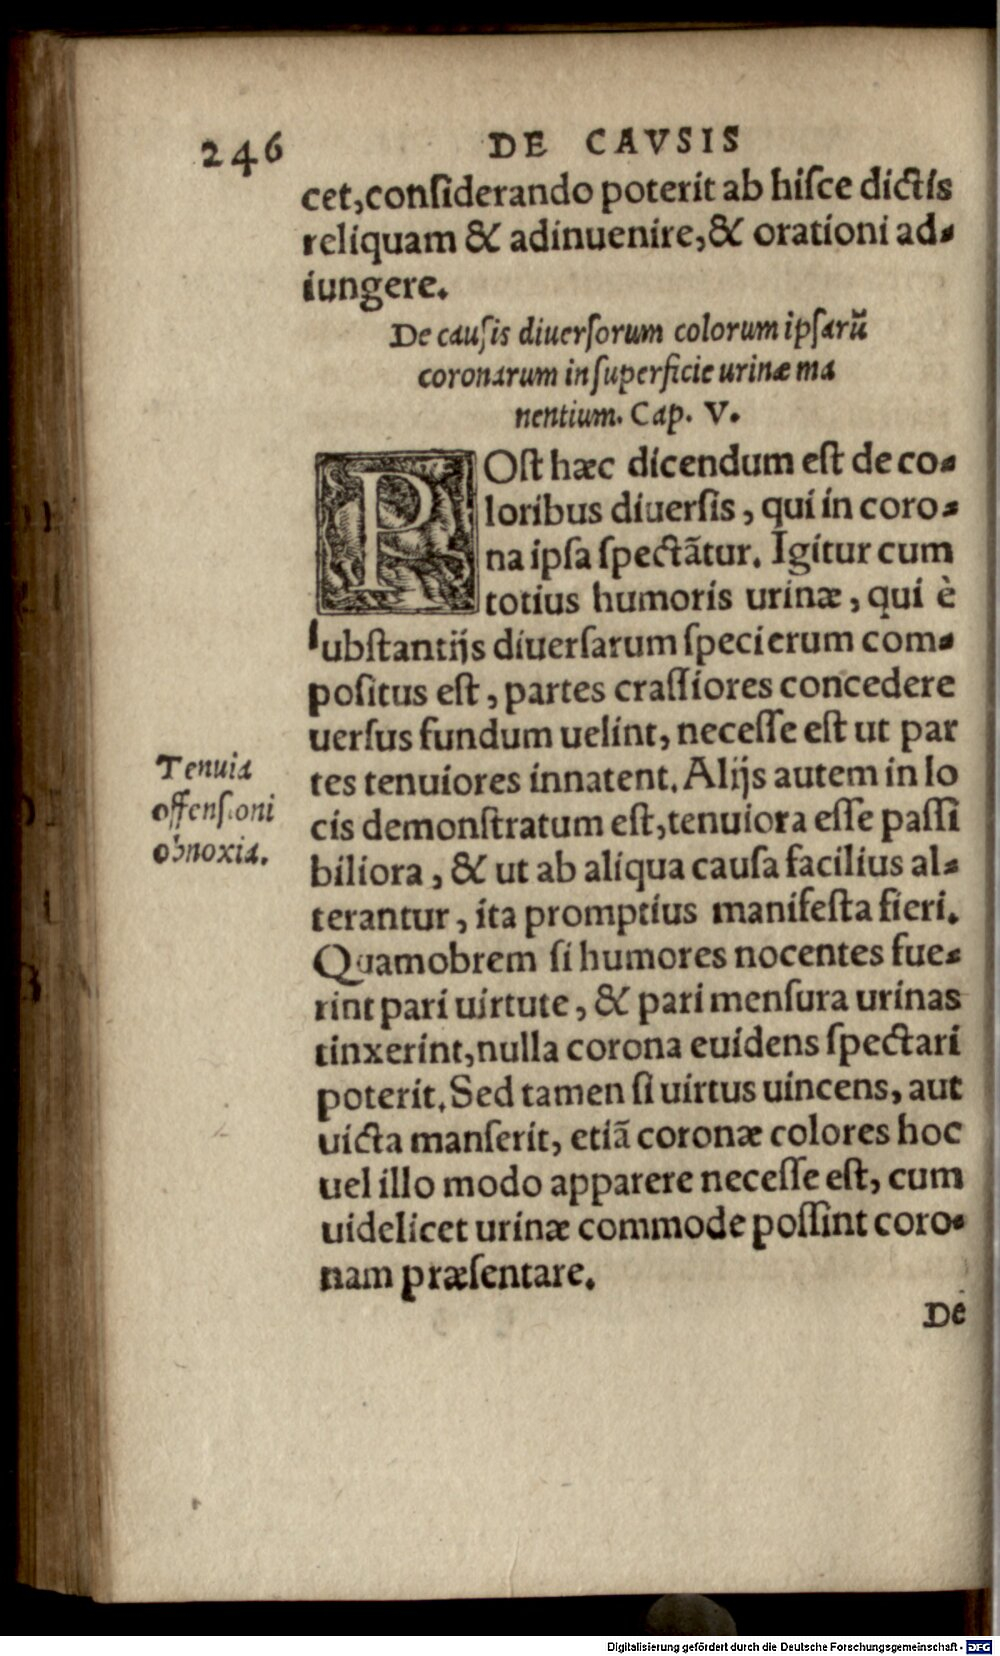 246
DE CAVSIS
cet,conſiderando poterit ab hiſce dictis
reliquam & adinuenire,& orationi ad-
iungere.
De cauſis diuerſorum colorum ipſarũ
coronarum in ſuperficie urinæ ma
nentium. Cap. V.
POſt hæc dicendum eſt de co-
loribus diuerſis, qui in coro-
na ipſa ſpectãtur. Igitur cum
totius humoris urinæ, qui è
ſubſtantijs diuerſarum ſpecierum com-
poſitus eſt, partes craſſiores concedere
uerſus fundum uelint, neceſſe eſt ut par
tes tenuiores innatent. Alijs autem in lo
cis demonſtratum eſt,tenuiora eſſe paſſi
biliora, & ut ab aliqua cauſa facilius al-
terantur, ita promptius manifeſta fieri.
Quamobrem ſi humores nocentes fue-
rint pari uirtute, & pari menſura urinas
tinxerint,nulla corona euidens ſpectari
poterit. Sed tamen ſi uirtus uincens, aut
uicta manſerit, etiã coronæ colores hoc
uel illo modo apparere neceſſe eſt, cum
uidelicet urinæ commode poſſint coro-
nam præſentare.
Tenuia
offenſioni
obnoxia.
De
Digitalisierung gefördert durch die Deutsche Forschungsgemeinschaft - DFG